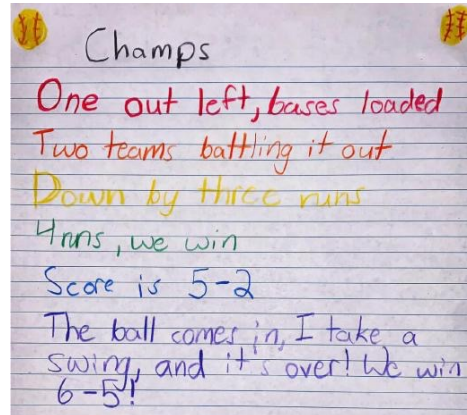 Champs
One out left, bases loaded
Two teams battling it out
Down by three runs
4 runs, we win
Score is 5-2
The ball comes in, I take a
swing, and it's over! We win
6-5!